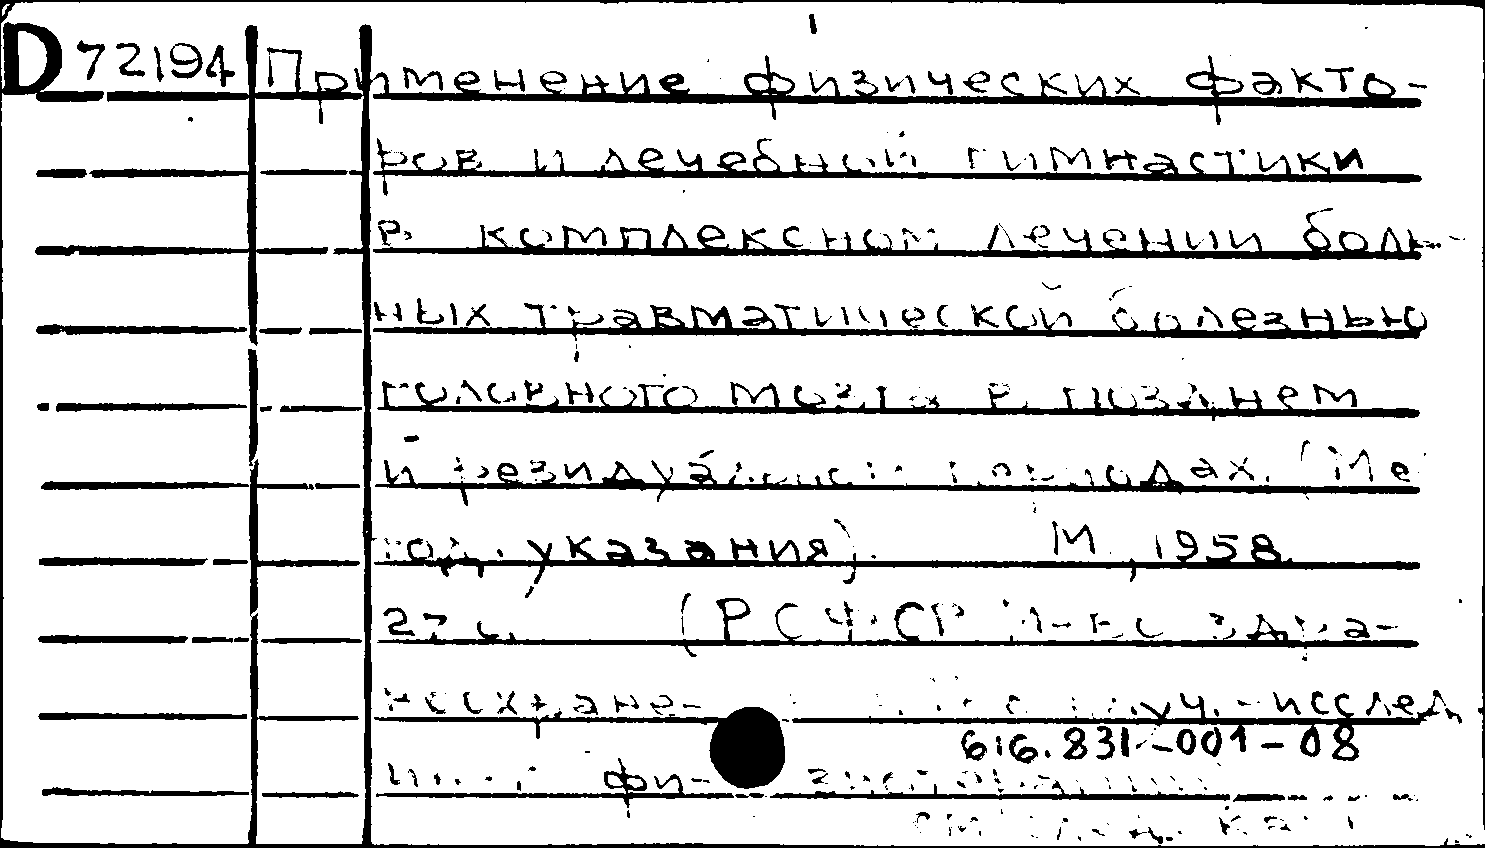 D 72194 Применение физических факто-
ров и лечебной гимнастики
в комплексном лечении боль-
ных травматической болезнью
головного мозга в позднем
и резидуальном периодах. (Ме
тод. указания). М., 1958.
27 с. (РСФСР М-во здра-
воохране- науч.-исслед.
616.831-001-08
ин-т физиотерапии
см след. кар